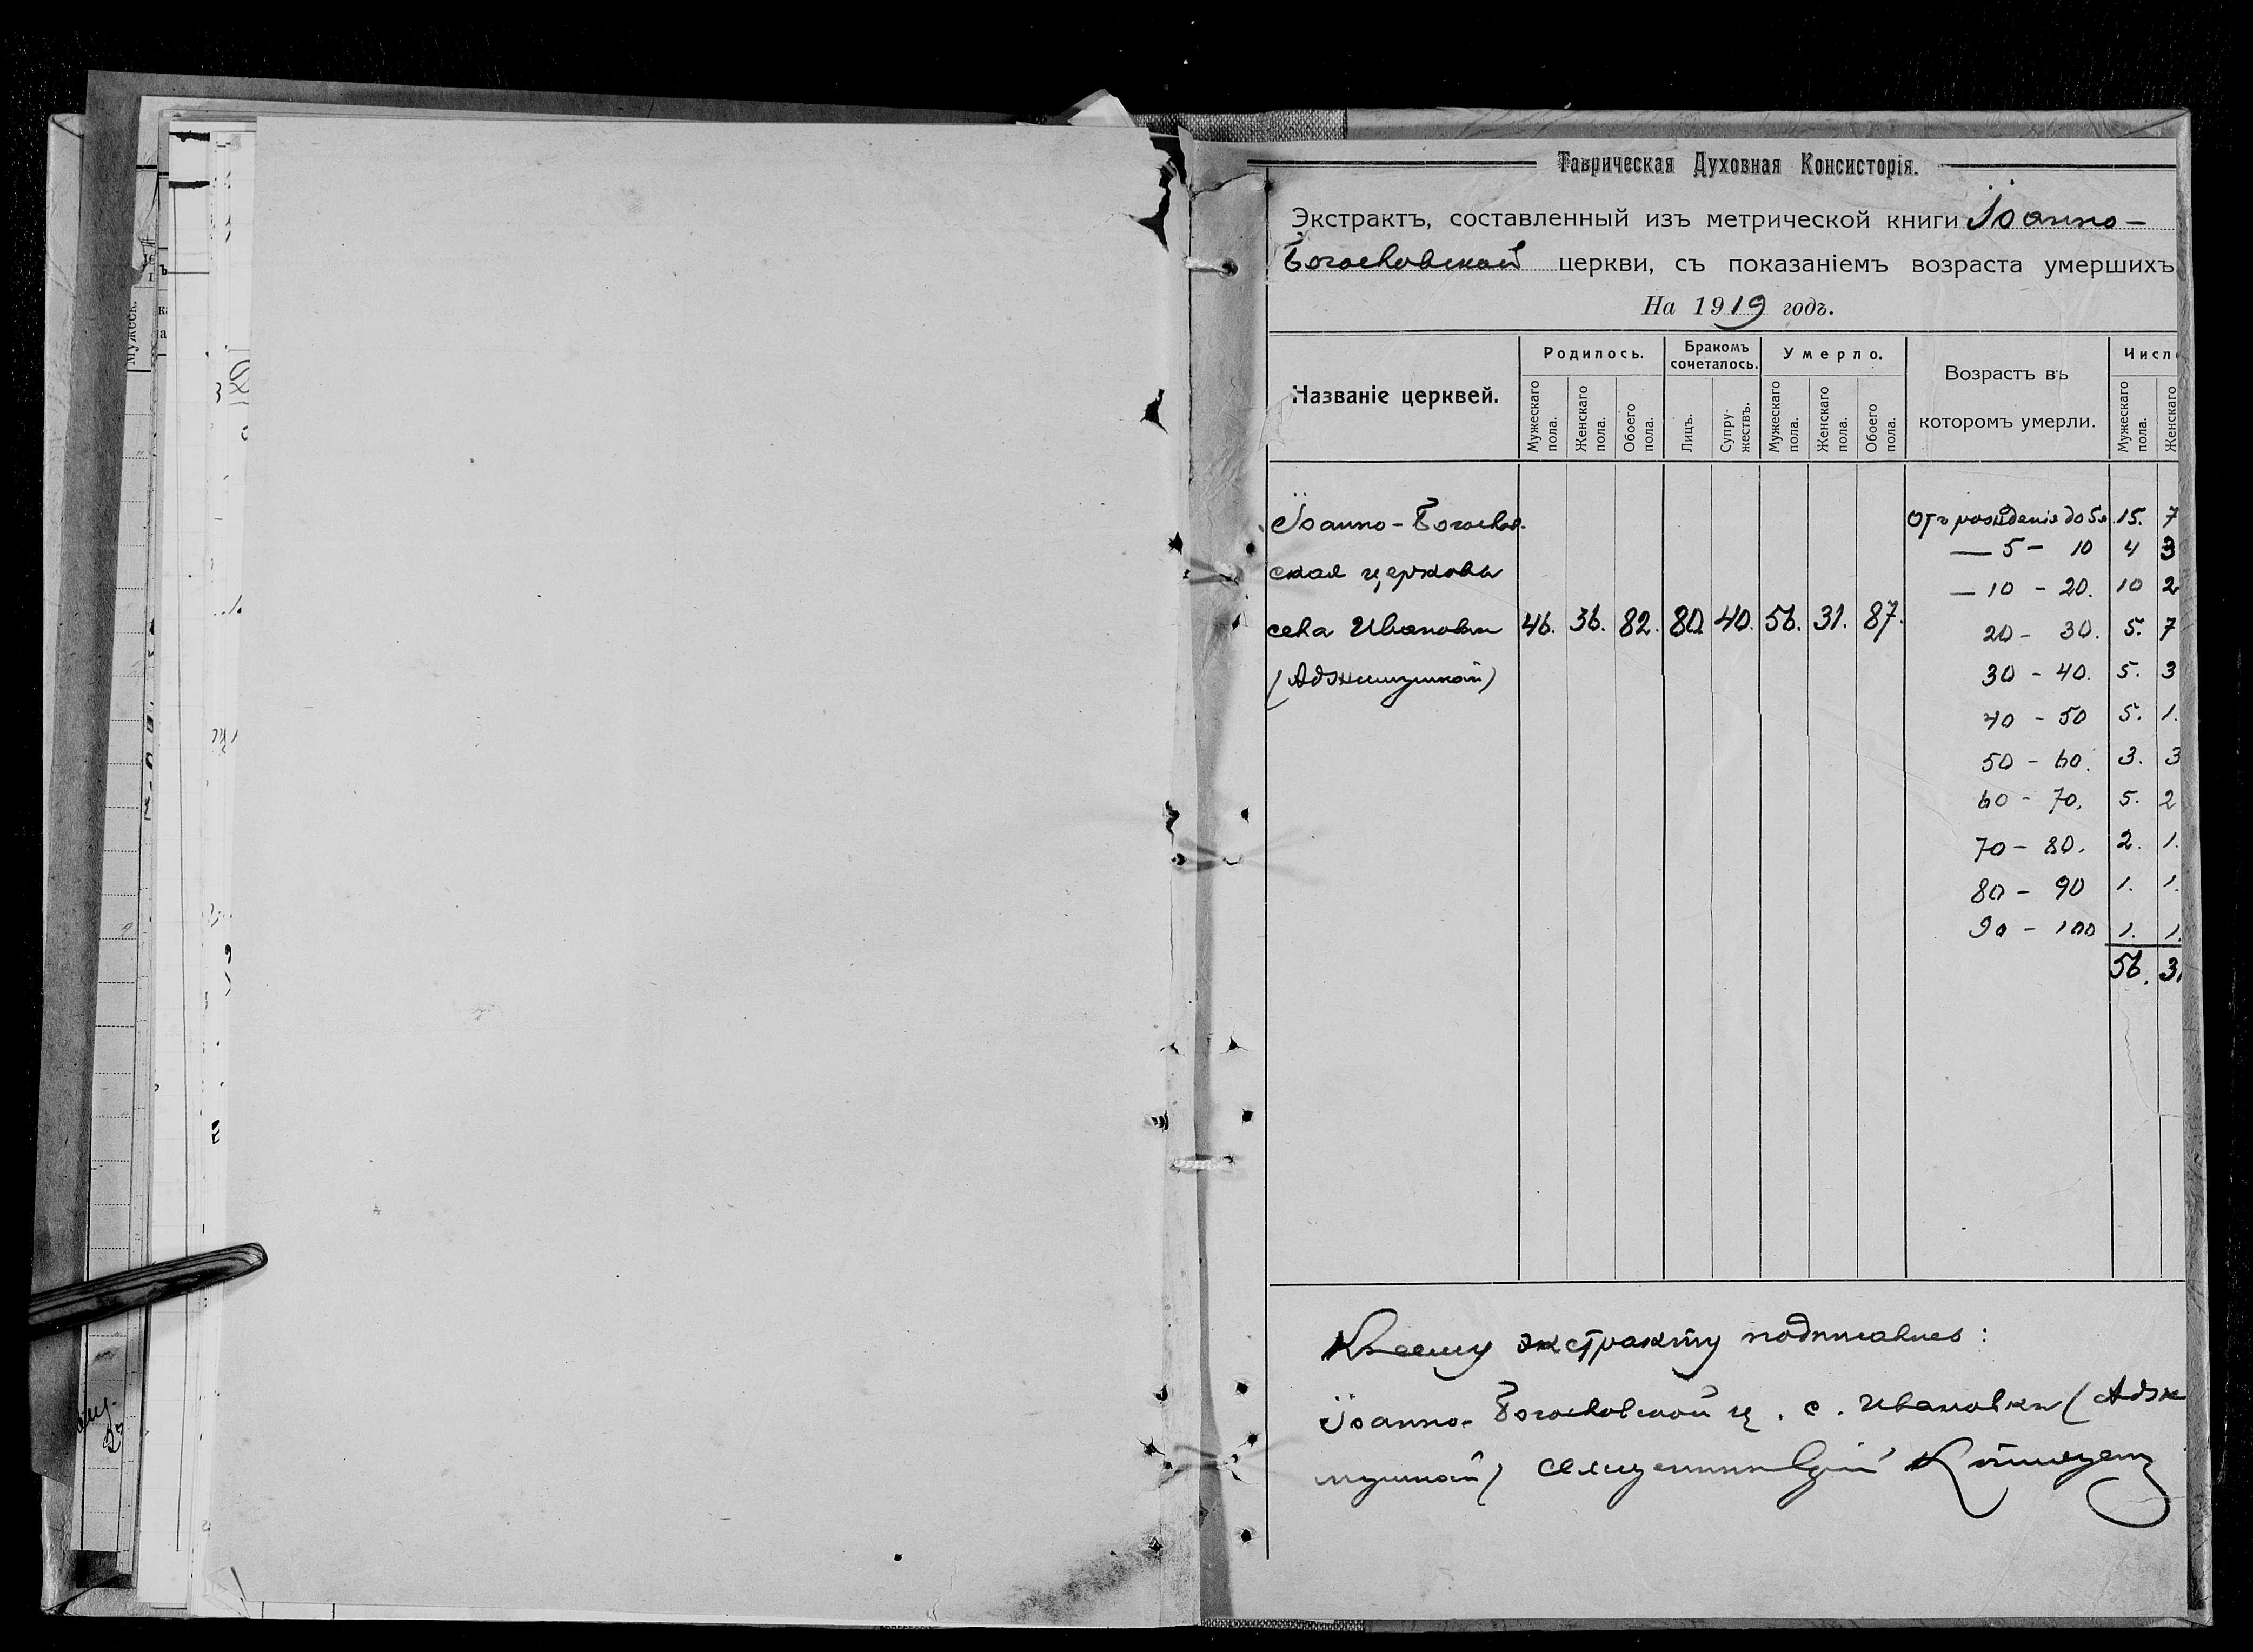 Таврическая Духовная Консисторія.
Экстрактъ, составленный изъ метрической книги Іоанно-
Богословской церкви, съ показаніемъ возраста умершихъ
На 1919 годъ.
Названіе церквей.
Родилось.
Бракомъ сочеталось.
Умерло.
Возрастъ въ которомъ умерли.
Числ
Мужескаго пола.
Женскаго пола.
Обоего пола.
Лицъ.
Супружествъ.
Мужескаго пола.
Женскаго пола.
Обоего пола.
Мужескаго пола.
Женскаго
Іоанно-Богослов-
ская церковь
села Ивановки 46. 36. 82. 80. 40. 56. 31. 87.
(Аджимушкай)
Отъ рожденія до 5 л. 15. 7
— 5 - 10 4 3
— 10 - 20. 10 2
20 - 30. 5. 7
30 - 40. 5. 3
40 - 50 5. 1.
50 - 60. 3. 3
60 - 70. 5. 2
70 - 80. 2. 1.
80 - 90 1. 1.
90 - 100 1. 1.
56. 31
Къ сему экстракту подписались:
Іоанно-Богословской ц. с. Ивановки (Адж
мушкай) священник
Мужеск.